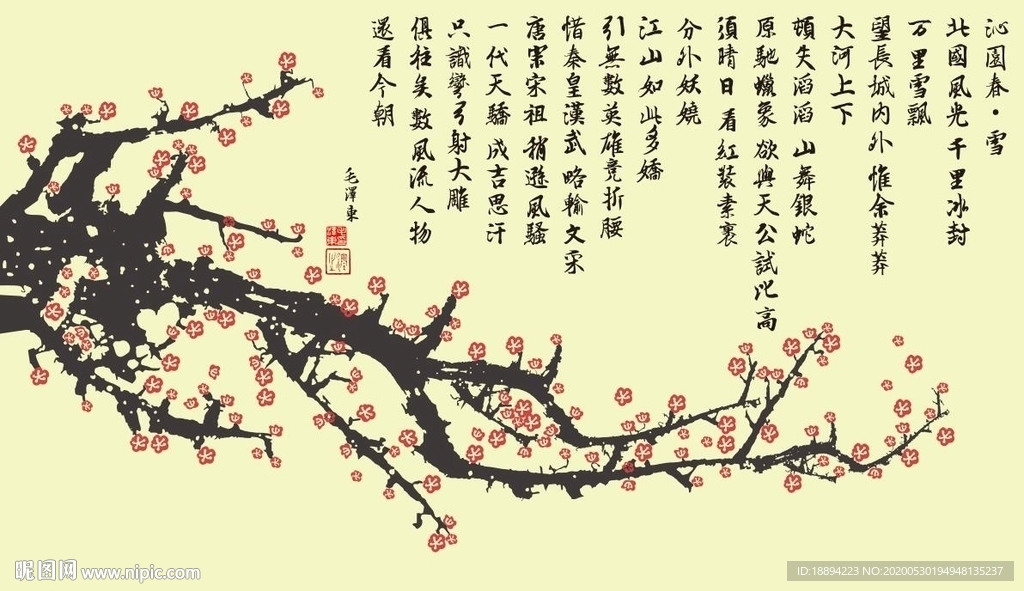 沁園春·雪
北國風光 千里冰封
万里雪飄
望長城內外 惟余莽莽
大河上下
頓失滔滔 山舞銀蛇
原馳蠟象 欲與天公試比高
須晴日 看紅裝素裹
分外妖嬈
江山如此多嬌
引無數英雄競折腰
惜秦皇漢武 略輸文采
唐宗宋祖 稍遜風騷
一代天驕 成吉思汗
只識彎弓射大雕
俱往矣 數風流人物
還看今朝
毛澤東
昵图网 www.nipic.com
ID:18894223 NO:20200530194948135237